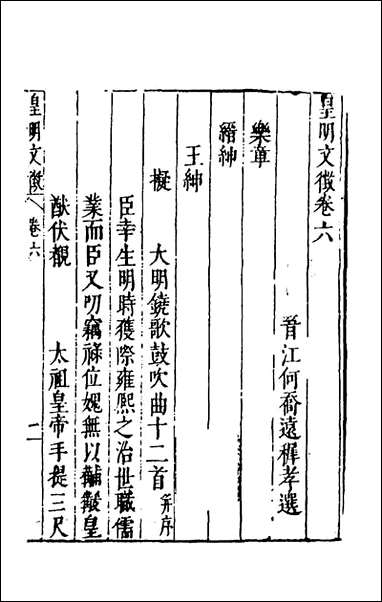 皇明文徵卷六
晉江何喬遠穉孝選
樂章
縉紳
王紳
擬　大明鐃歌鼓吹曲十二首 并序
臣幸生明時獲際雍熙之治世職儒
業而臣又叨竊祿位媿無以黼黻皇
猷伏覩　太祖皇帝手提三尺
皇明文徵 卷六 一